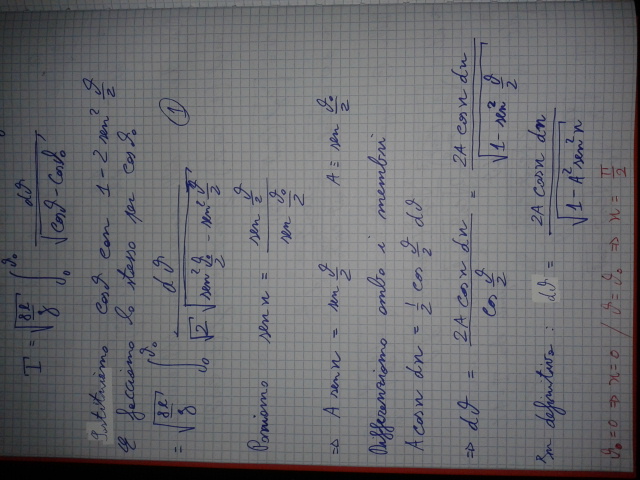 T = √(8l/g) ∫₀^ϑ₀ dϑ / √(cosϑ - cosϑ₀)
Sostituiamo cosϑ con 1 - 2 sen² ϑ/2
e facciamo lo stesso per cosϑ₀
= √(8l/g) ∫₀^ϑ₀ dϑ / (√2 √(sen² ϑ₀/2 - sen² ϑ/2)) (1)
Poniamo sen x = (sen ϑ/2) / (sen ϑ₀/2)
⇒ A sen x = sen ϑ/2 A = sen ϑ₀/2
Differenziamo ambo i membri
A cos x dx = 1/2 cos ϑ/2 dϑ
⇒ dϑ = (2A cos x dx) / (cos ϑ/2) = (2A cos x dx) / √(1 - sen² ϑ/2)
In definitiva: dϑ = (2A cos x dx) / √(1 - A² sen² x)
ϑ₀ = 0 ⇒ x = 0 / ϑ = ϑ₀ ⇒ x = π/2